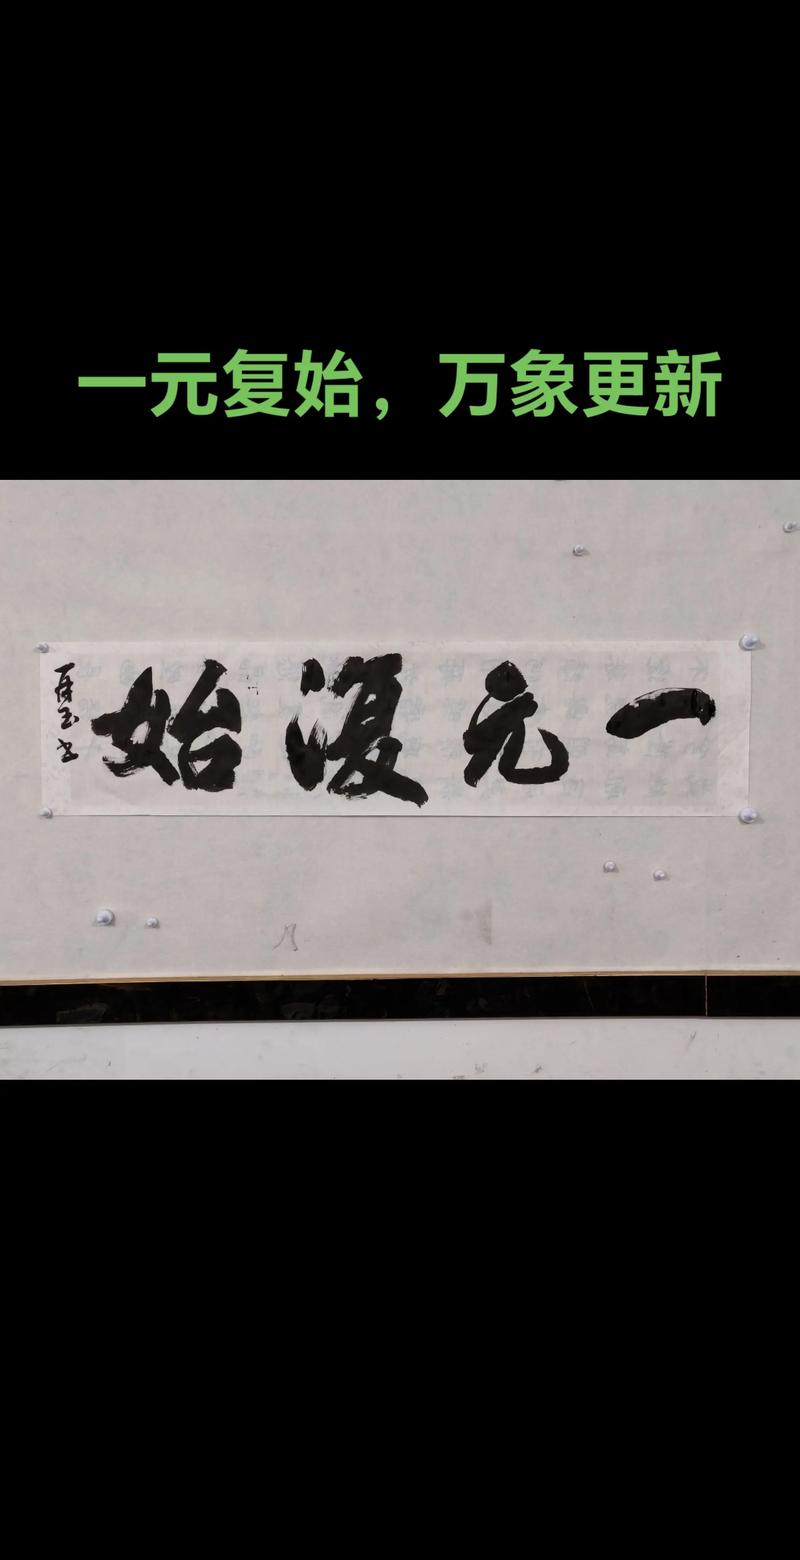 一元复始，万象更新
一元復始
再玉书